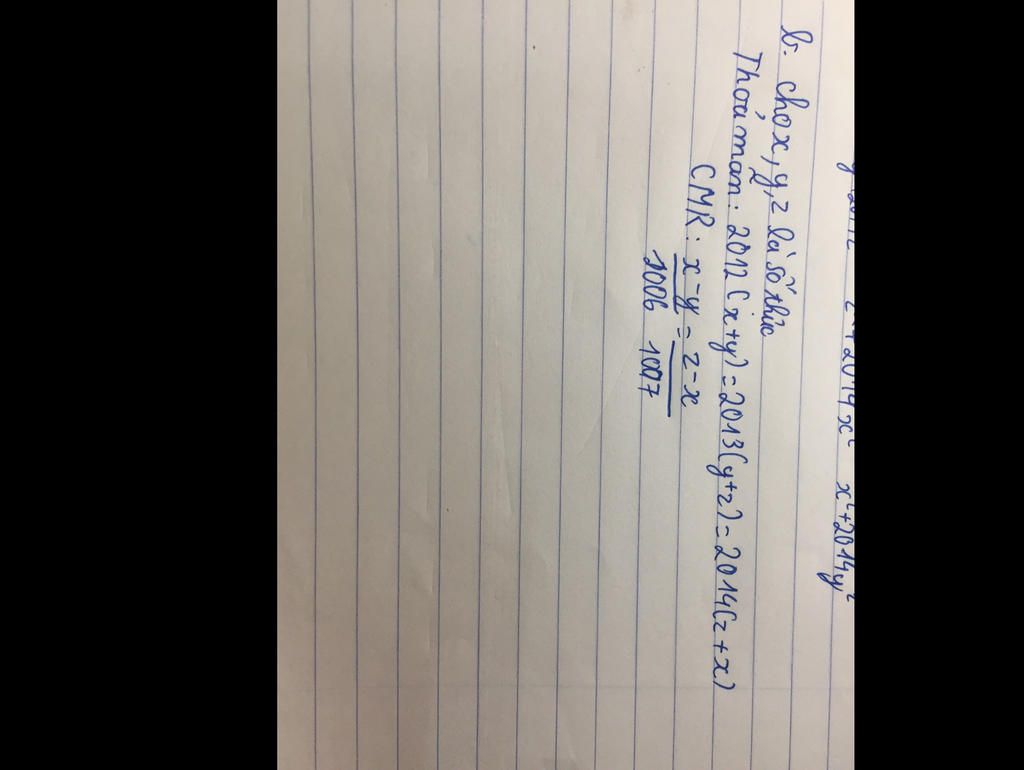 x²+2014y²
b. Cho x, y, z là số thực
Thoả mãn: 2012(x+y)=2013(y+z)=2014(z+x)
CMR: x-y = z-x
1006 1007